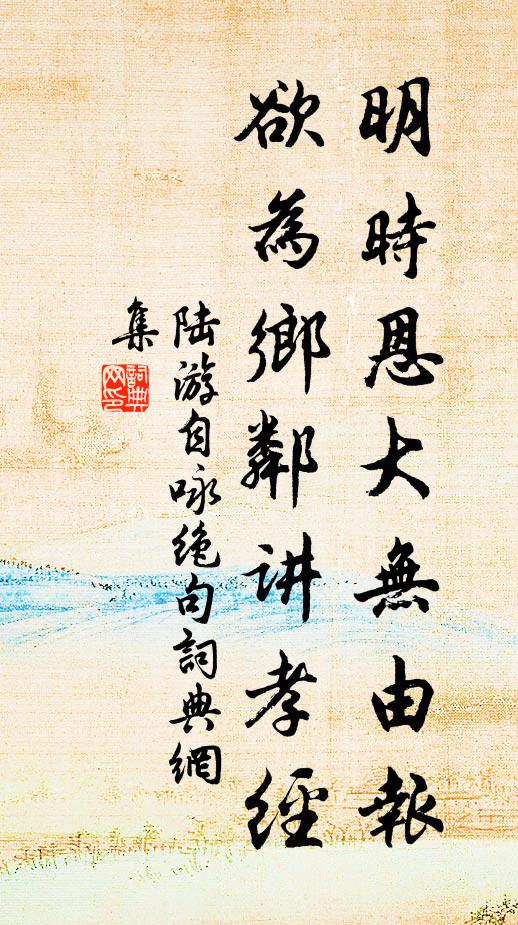 明時恩大無由報
欲為鄉鄰讲孝經
陆游自咏绝句詞典網
集
詞典
网印